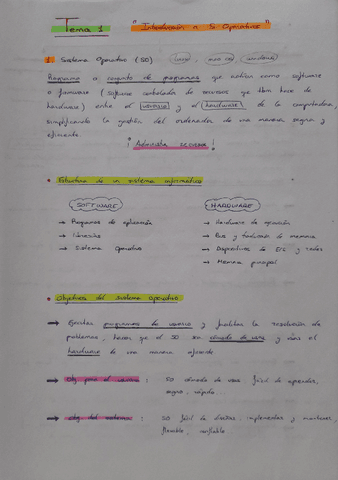 Tema 1 "Introducción a S. Operativos"
1. Sistema Operativo (SO) linux, mac OS, windows
Programa o conjunto de programas que actúan como software
o firmware (software controlado de recursos que
hardware) entre el usuario y el hardware de la computadora,
simplificando la gestión del ordenador de una manera segura y
eficiente.
¡Administra recursos!
• Estructura de un sistema informático
SOFTWARE
→ Programas de aplicación
→ Librerías
→ Sistema Operativo
HARDWARE
→ Hardware de ejecución
→ Bus y traductor de memoria
→ Dispositivos de E/S y redes
→ Memoria principal
• Objetivos del sistema operativo
→ Ejecutar programas de usuario y facilitar la resolución de
problemas, hacer que el SO sea cómodo de usar y usar el
hardware de una manera eficiente
→ Obj. para el usuario: SO cómodo de usar, fácil de aprender,
seguro, rápido...
→ Obj. del sistema: SO fácil de diseñar, implementar y mantener,
flexible, confiable...